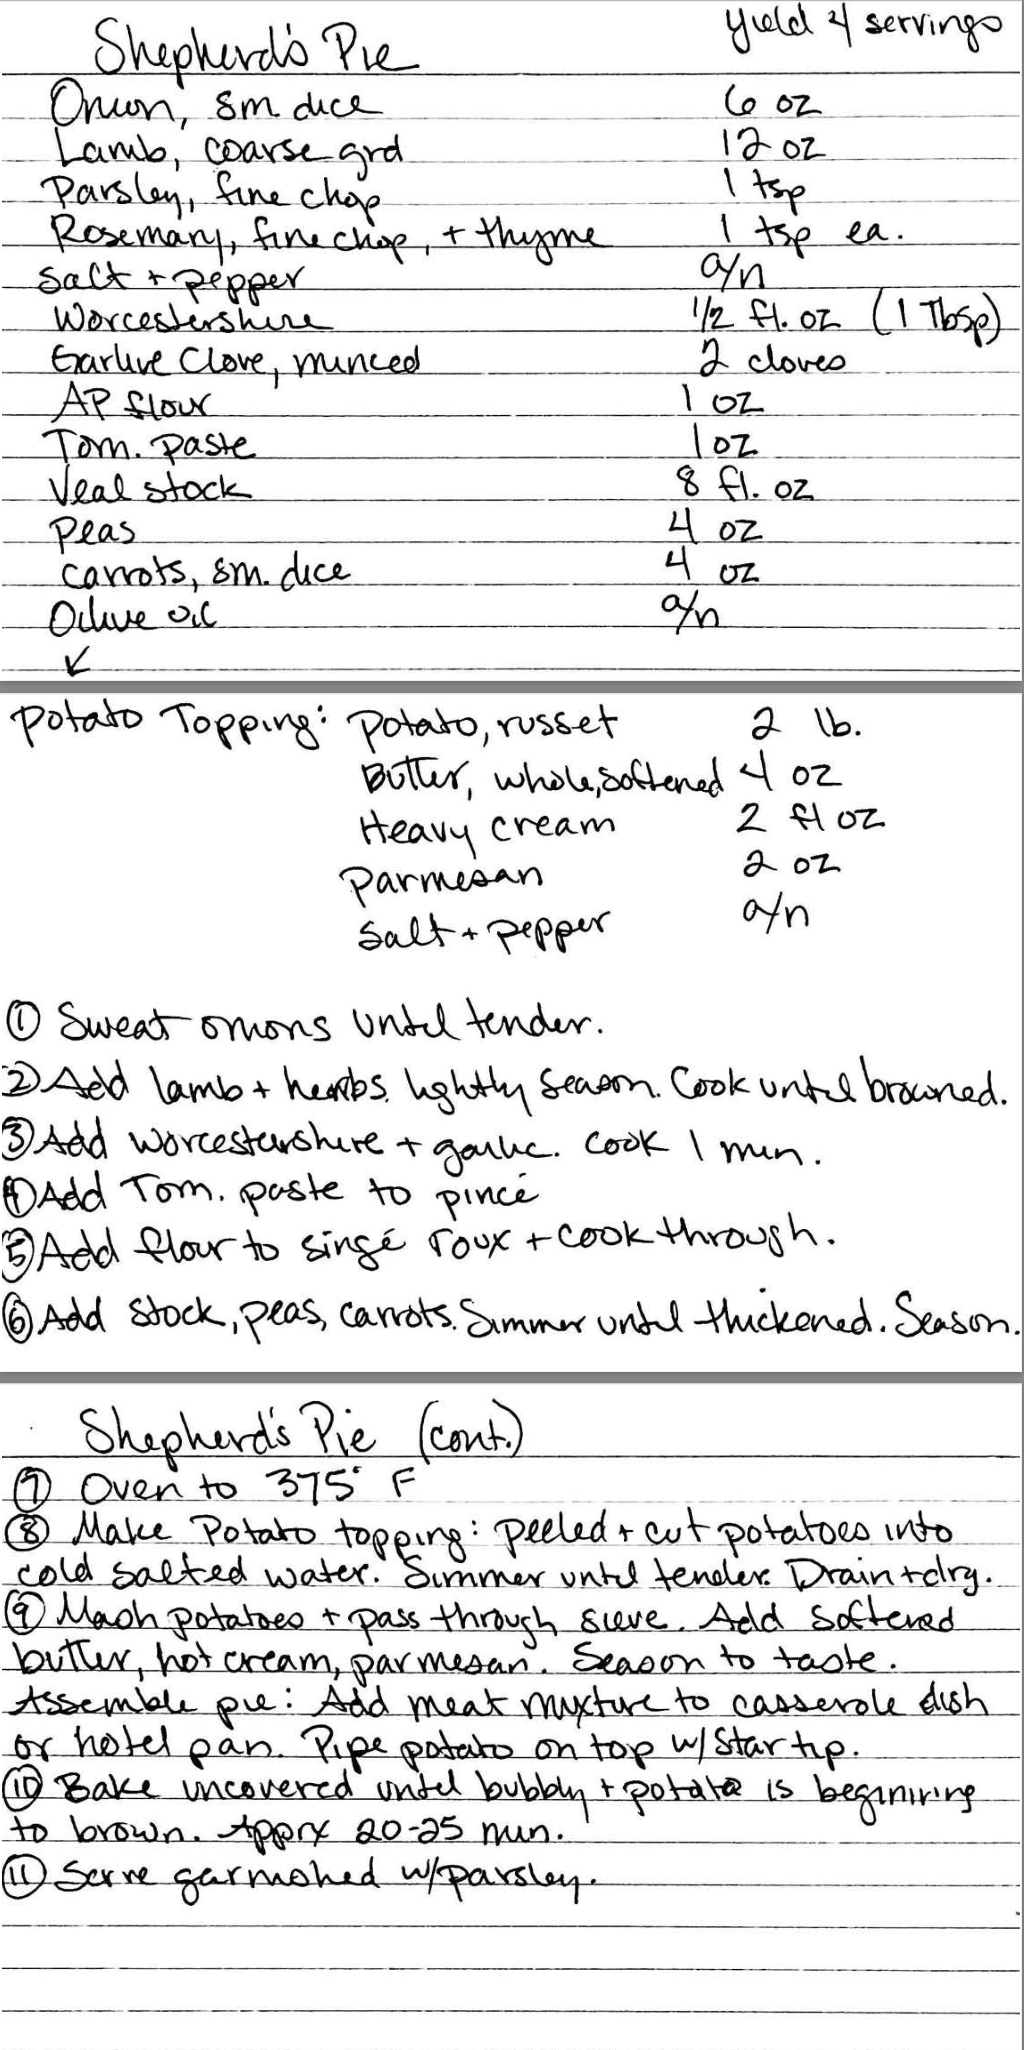 Shepherd's Pie yield 4 servings
Onion, sm. dice 6 oz
Lamb, coarse grd 12 oz
Parsley, fine chop 1 tsp
Rosemary, fine chop, + thyme 1 tsp ea.
Salt + pepper a/n
Worcestershire 1/2 fl. oz (1 Tbsp)
Garlive Clove, minced 2 cloves
AP flour 1 oz
Tom. paste 1 oz
Veal stock 8 fl. oz
Peas 4 oz
carrots, sm. dice 4 oz
Olive oil a/n
↙
Potato Topping: Potato, russet 2 lb.
Butter, whole, softened 4 oz
Heavy cream 2 fl oz
Parmesan 2 oz
Salt + pepper a/n
① Sweat onions until tender.
② Add lamb + herbs. lightly season. Cook until browned.
③ Add worcestershire + garlic. Cook 1 min.
④ Add Tom. paste to pincé
⑤ Add flour to singé roux + cook through.
⑥ Add stock, peas, carrots. Simmer until thickened. Season.
Shepherd's Pie (cont.)
⑦ Oven to 375° F
⑧ Make Potato topping: peeled + cut potatoes into
cold salted water. Simmer until tender. Drain + dry.
⑨ Mash potatoes + pass through sieve. Add softened
butter, hot cream, parmesan. Season to taste.
Assemble pie: Add meat mixture to casserole dish
or hotel pan. Pipe potato on top w/ star tip.
⑩ Bake uncovered until bubbly + potato is beginning
to brown. Apprx 20-25 min.
⑪ Serve garnished w/ parsley.